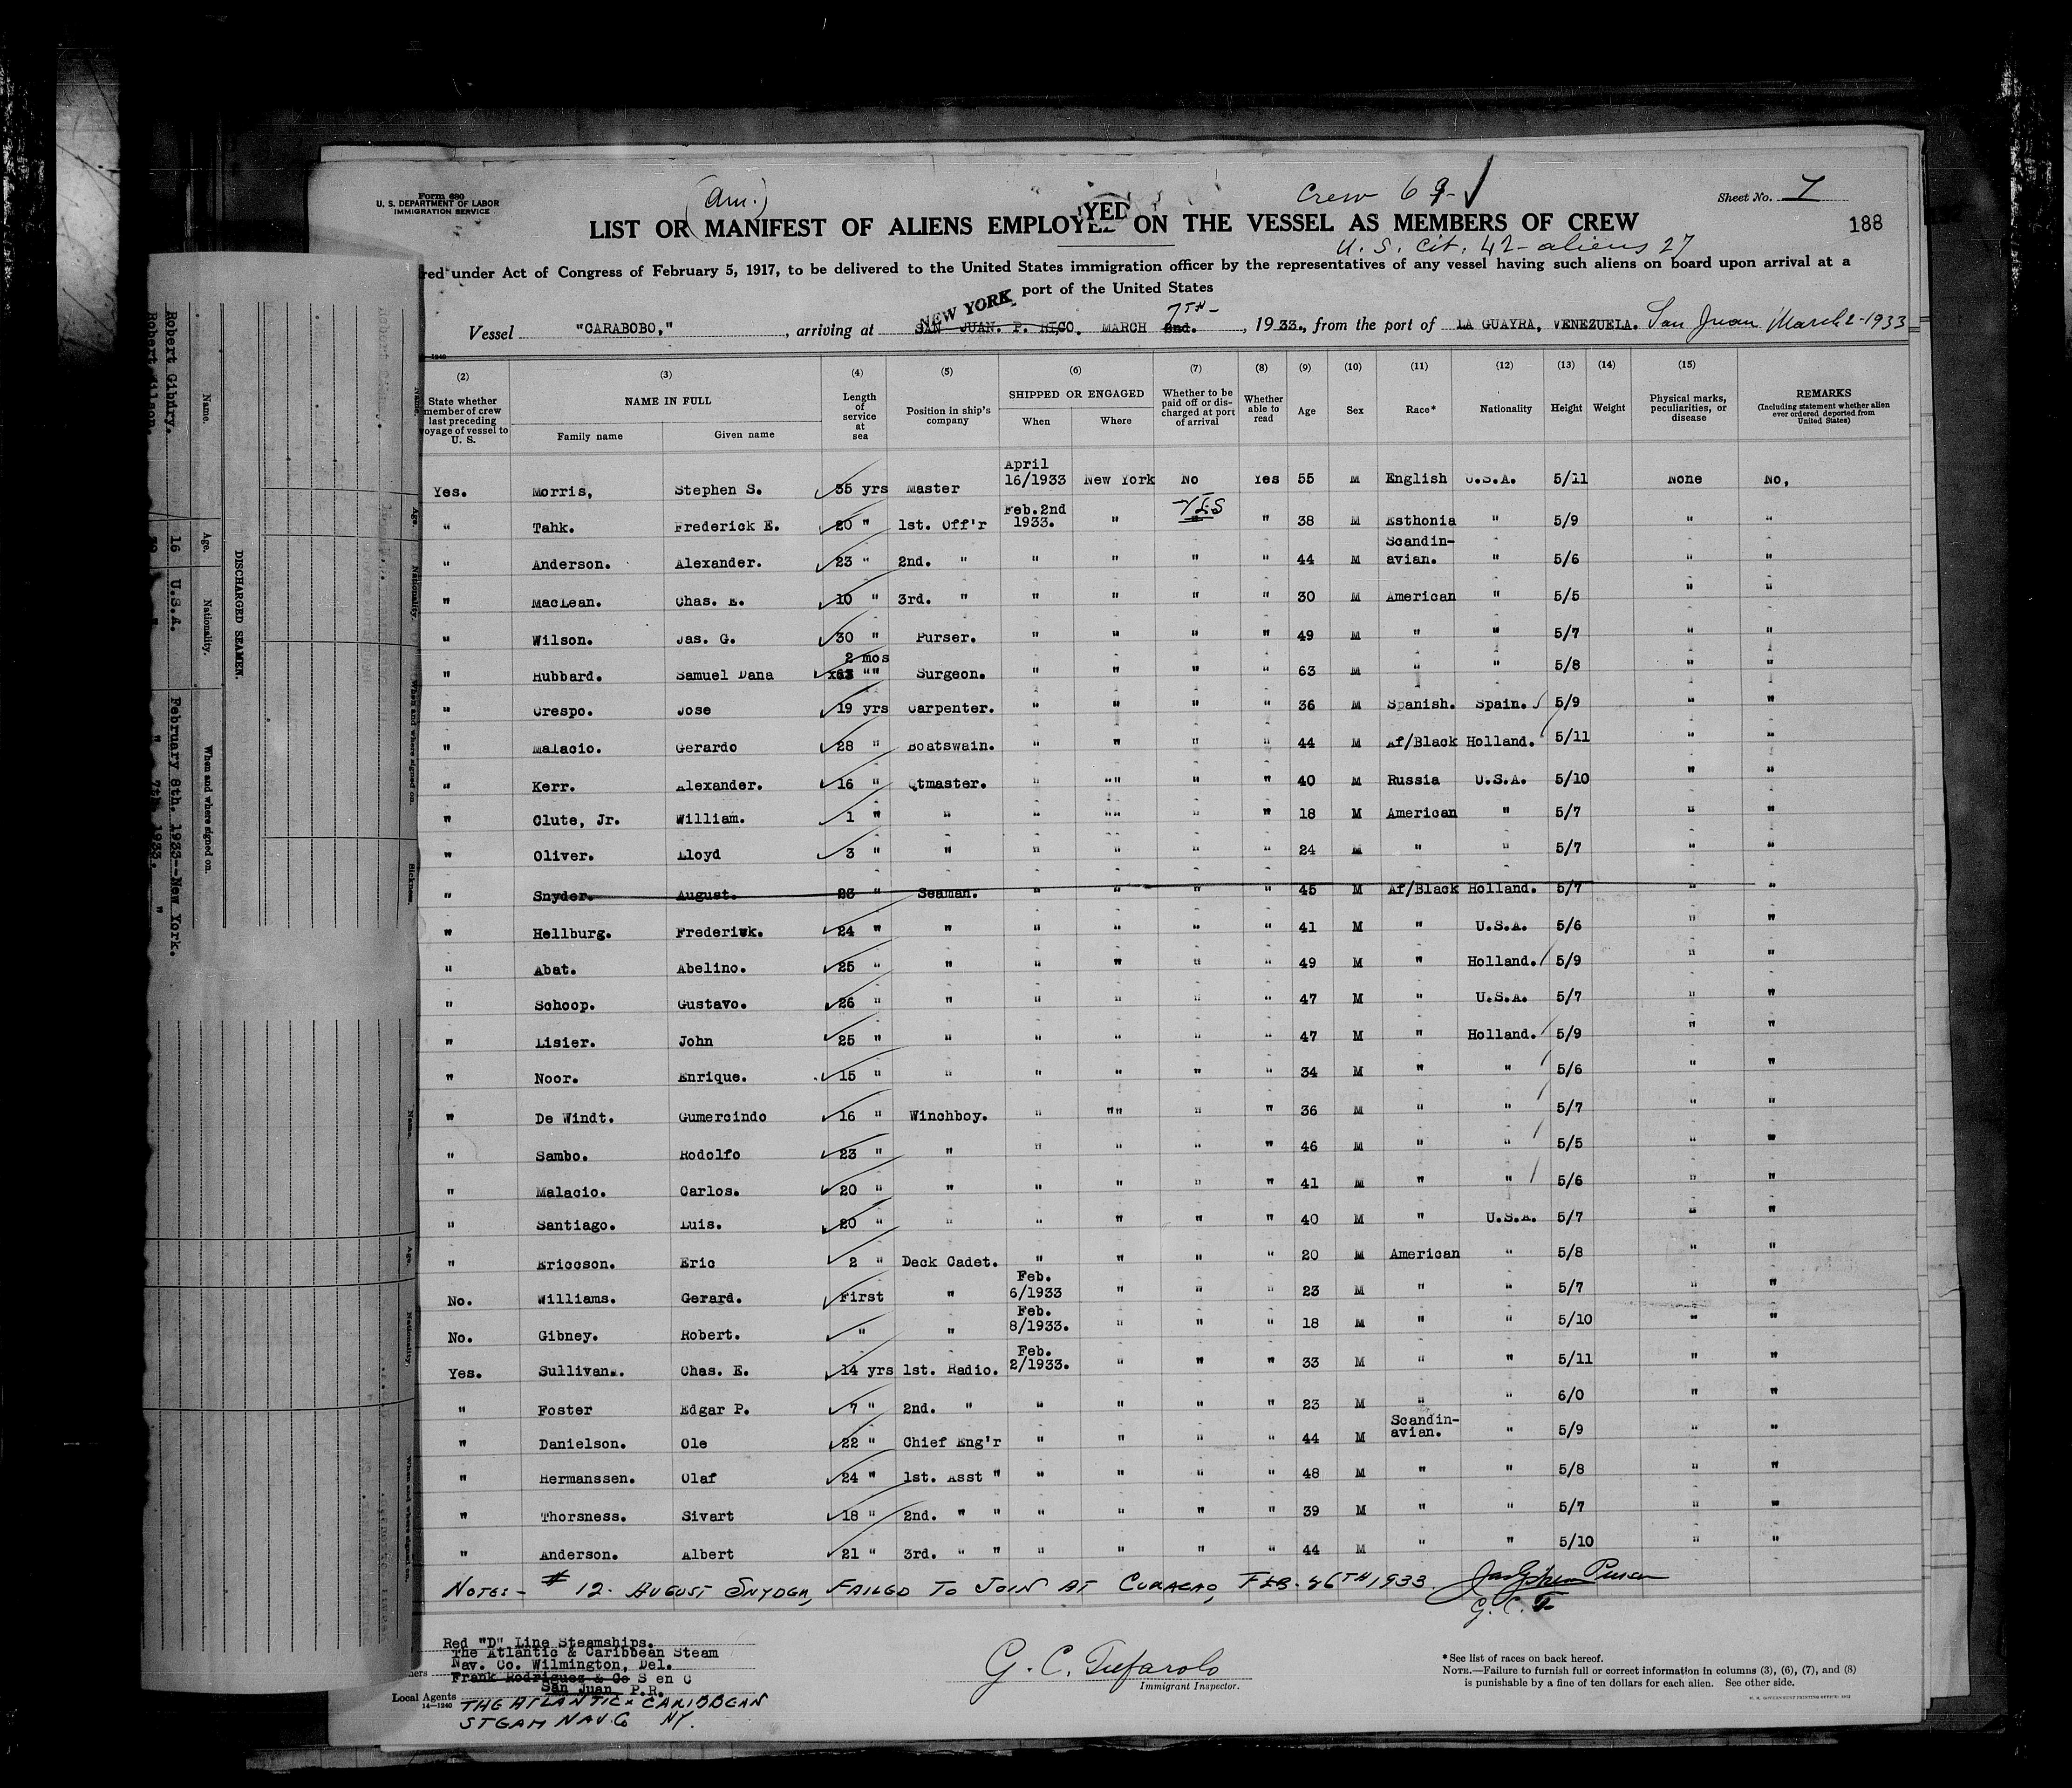 Form 680
U. S. DEPARTMENT OF LABOR
IMMIGRATION SERVICE
(Am.)
Crew 69 - ✓
Sheet No. 7
188
LIST OR MANIFEST OF ALIENS EMPLOYED ON THE VESSEL AS MEMBERS OF CREW
U. S. Cit. 42 - aliens 27
red under Act of Congress of February 5, 1917, to be delivered to the United States immigration officer by the representatives of any vessel having such aliens on board upon arrival at a
port of the United States
Vessel "CARABOBO," , arriving at SAN JUAN. P. RICO. NEW YORK MARCH 2nd. 7TH - , 1933., from the port of LA GUAYRA, VENEZUELA. San Juan March 2-1933
(2) (3) (4) (5) (6) (7) (8) (9) (10) (11) (12) (13) (14) (15)
State whether member of crew last preceding voyage of vessel to U. S.
NAME IN FULL
Family name Given name
Length of service at sea
Position in ship's company
SHIPPED OR ENGAGED
When Where
Whether to be paid off or discharged at port of arrival
Whether able to read
Age Sex Race* Nationality Height Weight
Physical marks, peculiarities, or disease
REMARKS
(Including statement whether alien ever ordered deported from United States)
Yes. Morris, Stephen S. 35 yrs Master April 16/1933 New York No Yes 55 M English U.S.A. 5/11 None No,
" Tahk. Frederick E. 20 " 1st. Off'r Feb.2nd 1933. " YES " 38 M Esthonia " 5/9 " "
" Anderson. Alexander. 23 " 2nd. " " " " " 44 M Scandin-avian. " 5/6 " "
" MacLean. Chas. E. 10 " 3rd. " " " " " 30 M American " 5/5 " "
" Wilson. Jas. G. 30 " Purser. " " " " 49 M " " 5/7 " "
" Hubbard. Samuel Dana 2 mos "" Surgeon. " " " " 63 M " " 5/8 " "
" Crespo. Jose 19 yrs Carpenter. " " " " 36 M Spanish. Spain. 5/9 " "
" Malacio. Gerardo 28 " Boatswain. " " " " 44 M Af/Black Holland. 5/11 " "
" Kerr. Alexander. 16 " Qtmaster. " "" " " 40 M Russia U.S.A. 5/10 " "
" Clute, Jr. William. 1 " " " "" " " 18 M American " 5/7 " "
" Oliver. Lloyd 3 " " " " " " 24 M " " 5/7 " "
" Snyder. August. 23 " Seaman. " " " " 45 M Af/Black Holland. 5/7 " "
" Hellburg. Frederick. 24 " " " " " " 41 M " U.S.A. 5/6 " "
" Abat. Abelino. 25 " " " " " " 49 M " Holland. 5/9 " "
" Schoop. Gustavo. 26 " " " " " " 47 M " U.S.A. 5/7 " "
" Lisier. John 25 " " " " " " 47 M " Holland. 5/9 " "
" Noor. Enrique. 15 " " " " " " 34 M " " 5/6 " "
" De Windt. Gumercindo 16 " Winchboy. " "" " " 36 M " " 5/7 " "
" Sambo. Rodolfo 23 " " " " " " 46 M " " 5/5 " "
" Malacio. Carlos. 20 " " " " " " 41 M " " 5/6 " "
" Santiago. Luis. 20 " " " " " " 40 M " U.S.A. 5/7 " "
" Ericcson. Eric 2 " Deck Cadet. " " " " 20 M American " 5/8 " "
No. Williams. Gerard. First " Feb. 6/1933 " " " 23 M " " 5/7 " "
No. Gibney. Robert. " " Feb. 8/1933. " " " 18 M " " 5/10 " "
Yes. Sullivan.. Chas. E. 14 yrs 1st. Radio. Feb. 2/1933. " " " 33 M " " 5/11 " "
" Foster Edgar P. 7 " 2nd. " " " " " 23 M " " 6/0 " "
" Danielson. Ole 22 " Chief Eng'r " " " " 44 M Scandin-avian. " 5/9 " "
" Hermanssen. Olaf 24 " 1st. Asst " " " " " 48 M " " 5/8 " "
" Thorsness. Sivart 18 " 2nd. " " " " " " 39 M " " 5/7 " "
" Anderson. Albert 21 " 3rd. " " " " " " 44 M " " 5/10 " "
NOTE:- # 12. AUGUST SNYDER, FAILED TO JOIN AT CURACAO, FEB. 26TH 1933. Purser
G. C. T.
Red "D" Line Steamships.
The Atlantic & Caribbean Steam
Nav. Co. Wilmington, Del.
Frank Rodriguez & Co S en C
San Juan P.R.
Local Agents THE ATLANTIC & CARIBBEAN
STEAM NAV. Co NY.
14-1240
G. C. Tufarolo
Immigrant Inspector.
* See list of races on back hereof.
NOTE.—Failure to furnish full or correct information in columns (3), (6), (7), and (8)
is punishable by a fine of ten dollars for each alien. See other side.
DISCHARGED SEAMEN.
Name. Age. Nationality. When and where signed on.
Robert Gibnry. 16 U.S.A. February 8th. 1933--New York.
Robert Wilson. " " 7th 1933. "
Name. Age. Nationality. When and where signed on. Sickness.
Name. Age. Nationality. When and where signed on.